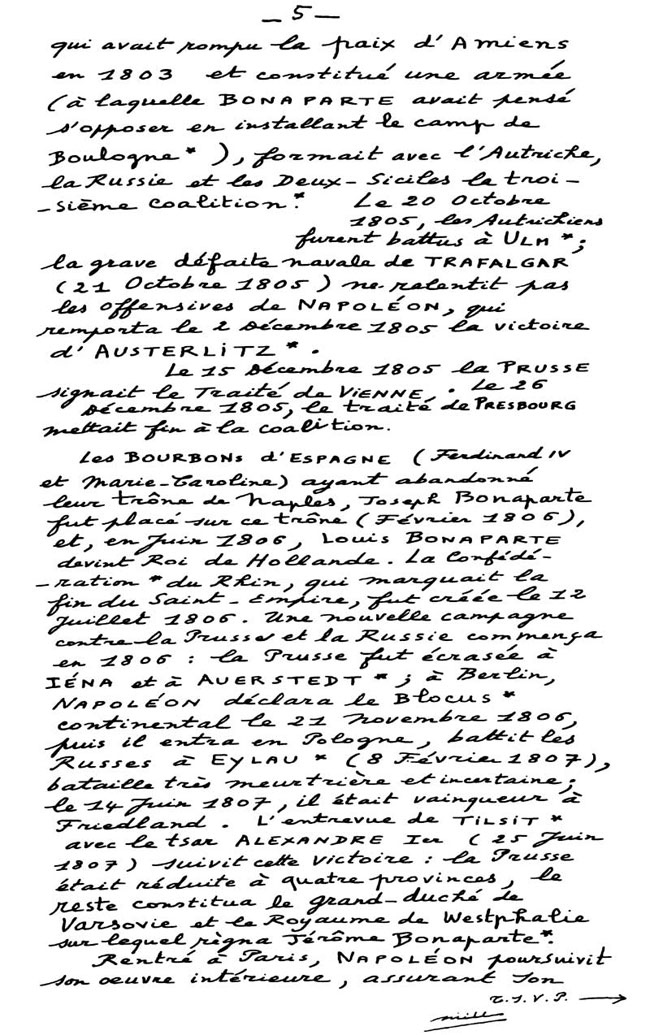 — 5 —
qui avait rompu la paix d'Amiens
en 1803 et constitué une armée
(à laquelle BONAPARTE avait pensé
s'opposer en installant le camp de
Boulogne * ), formait avec l'Autriche,
la Russie et les Deux-Siciles la troi-
-sième coalition *. Le 20 Octobre
1805, les Autrichiens
furent battus à ULM * ;
la grave défaite navale de TRAFALGAR
(21 Octobre 1805) ne ralentit pas
les offensives de NAPOLÉON, qui
remporta le 2 Décembre 1805 la victoire
d'AUSTERLITZ * .
Le 15 Décembre 1805 la PRUSSE
signait le Traité de VIENNE . Le 26
Décembre 1805, le traité de PRESBOURG
mettait fin à la coalition.
Les BOURBONS d'ESPAGNE (Ferdinand IV
et Marie-Caroline) ayant abandonné
leur trône de Naples, Joseph Bonaparte
fut placé sur ce trône (Février 1806),
et, en Juin 1806, Louis BONAPARTE
devint Roi de Hollande. La Confédé-
-ration * du Rhin, qui marquait la
fin du Saint-Empire, fut créée le 12
Juillet 1806. Une nouvelle campagne
contre la Prusse et la Russie commença
en 1806 : la Prusse fut écrasée à
IÉNA et à AUERSTEDT * ; à Berlin,
NAPOLÉON déclara le Blocus *
continental le 21 Novembre 1806,
puis il entra en Pologne, battit les
Russes à EYLAU * (8 Février 1807),
bataille très meurtrière et incertaine ;
le 14 Juin 1807, il était vainqueur à
Friedland . L'entrevue de TILSIT *
avec le tsar ALEXANDRE Ier (25 Juin
1807) suivit cette victoire : la Prusse
était réduite à quatre provinces, le
reste constitua le grand-duché de
Varsovie et le Royaume de Westphalie
sur lequel règna Jérôme Bonaparte *.
Rentré à Paris, NAPOLÉON poursuivit
son oeuvre intérieure, assurant son
T.S.V.P. →